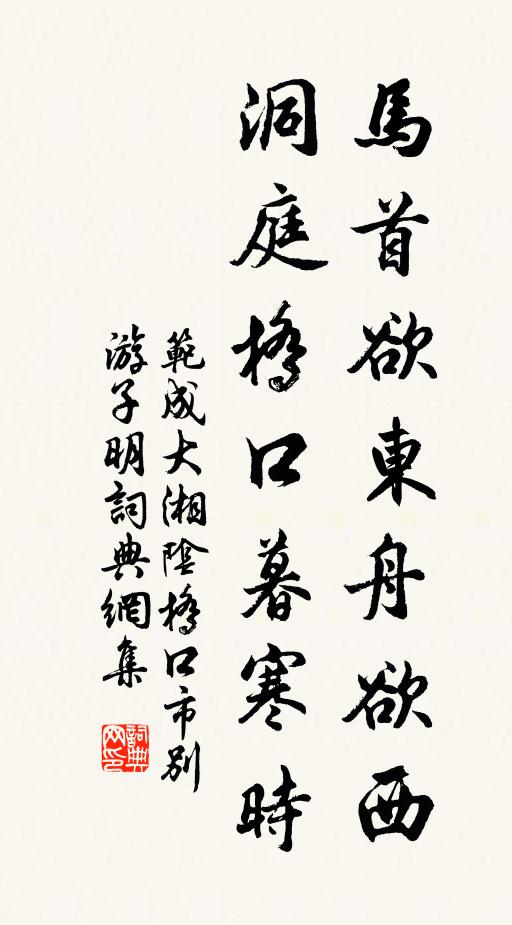 馬首欲東舟欲西
洞庭橋口暮寒時
範成大湘陰橋口市別
游子明詞典網集
詞典
网印